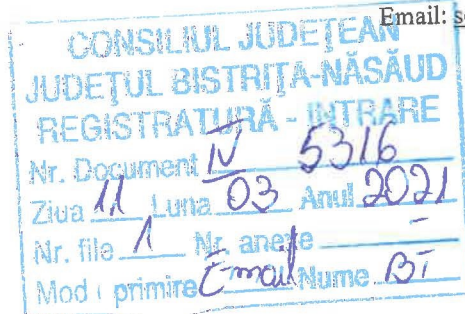 Email: s
CONSILIUL JUDEȚEAN
JUDEȚUL BISTRIȚA-NĂSĂUD
REGISTRATURĂ - INTRARE
Nr. Document IV 5316
Ziua 11 Luna 03 Anul 2021
Nr. file 1 Nr. anexe -
Mod primire Email Nume BT